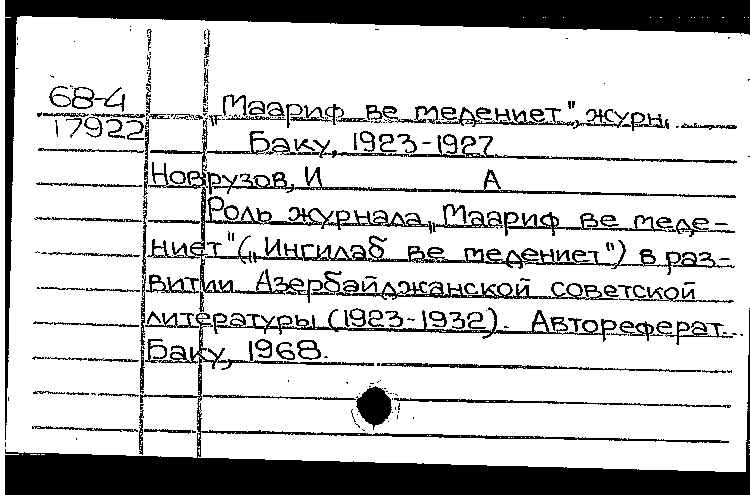 68-4
17922
„Маариф ве медениет", журн.
Баку, 1923-1927
Новрузов, И А
Роль журнала „Маариф ве меде-
ниет" („Ингилаб ве медениет") в раз-
витии Азербайджанской советской
литературы (1923-1932). Автореферат.
Баку, 1968.